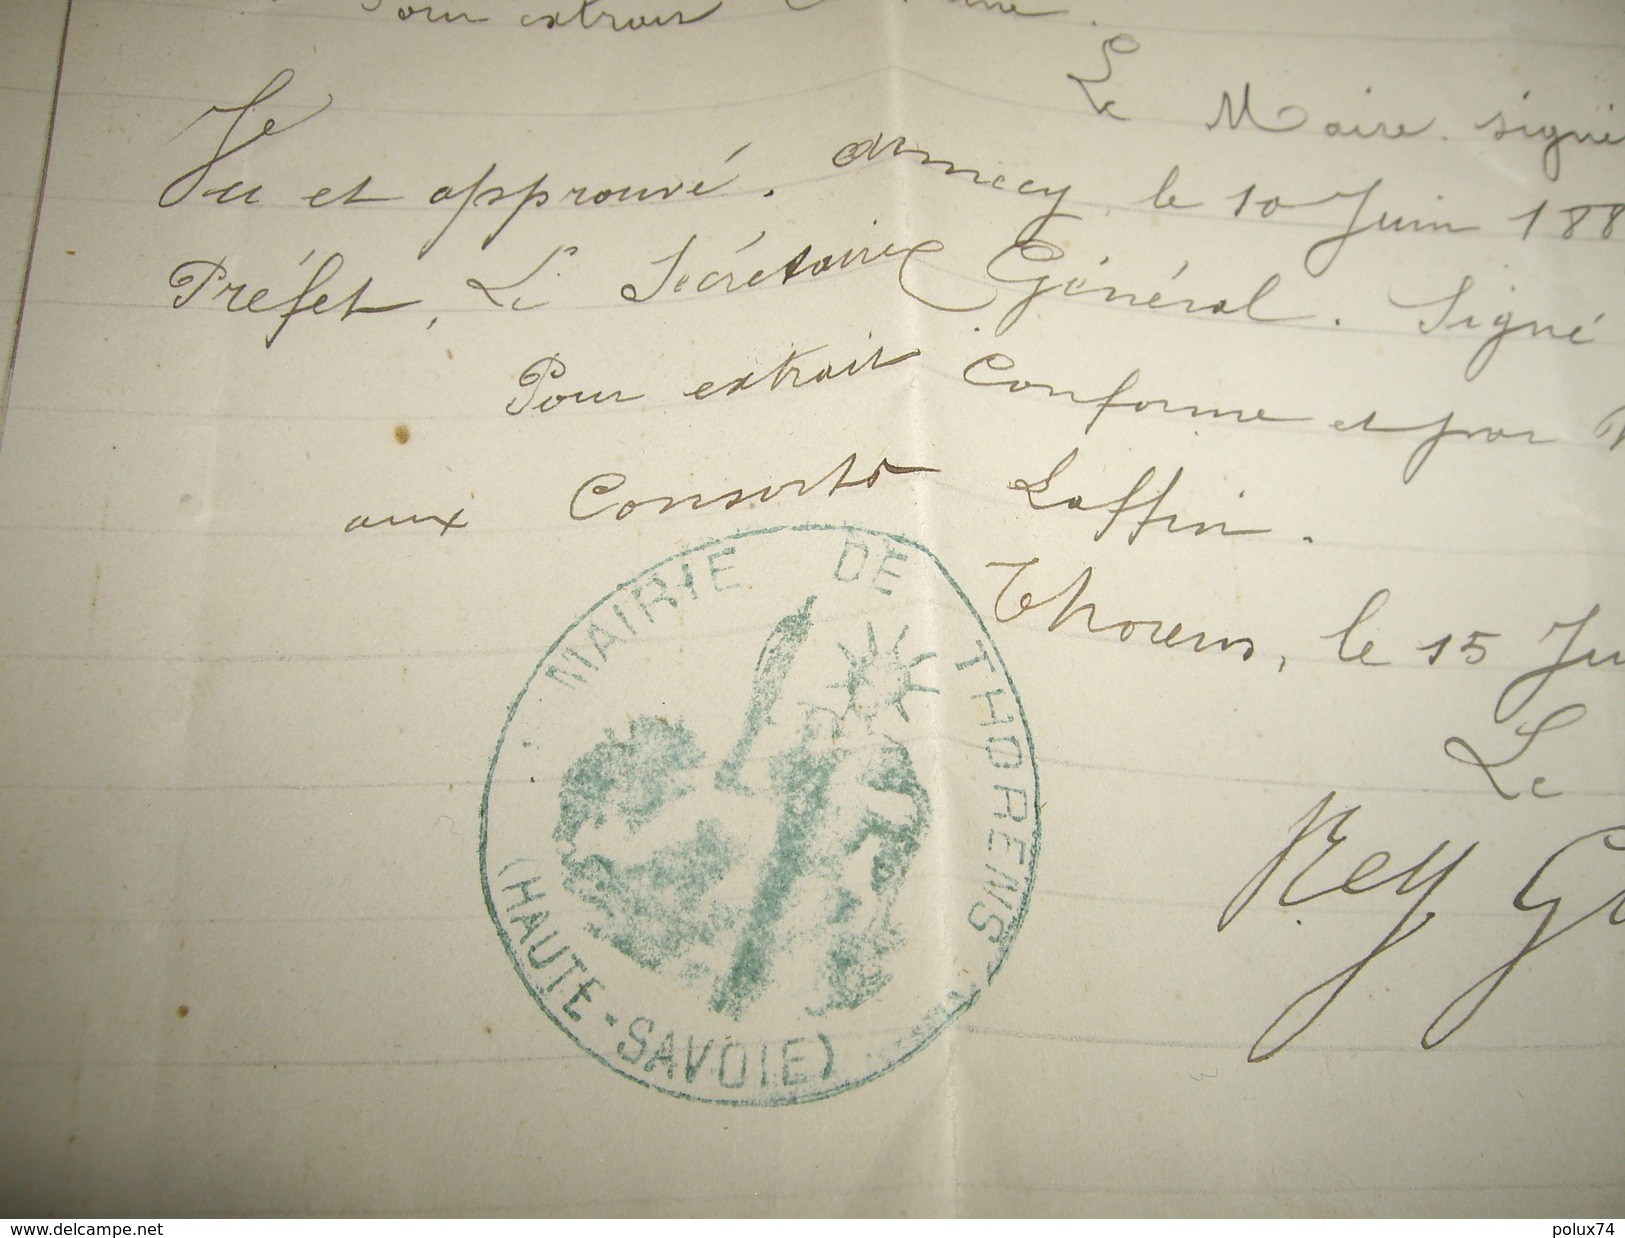 Pour extrait
Le Maire. signé
Vu et approuvé. Annecy, le 10 Juin 188
Préfet, Le Secrétaire Général. Signé
Pour extrait Conforme et pour
aux Consorts Laffin.
Thorens, le 15 Ju
Le
Rey
MAIRIE DE THORENS
(HAUTE-SAVOIE)
www.delcampe.net
polux74